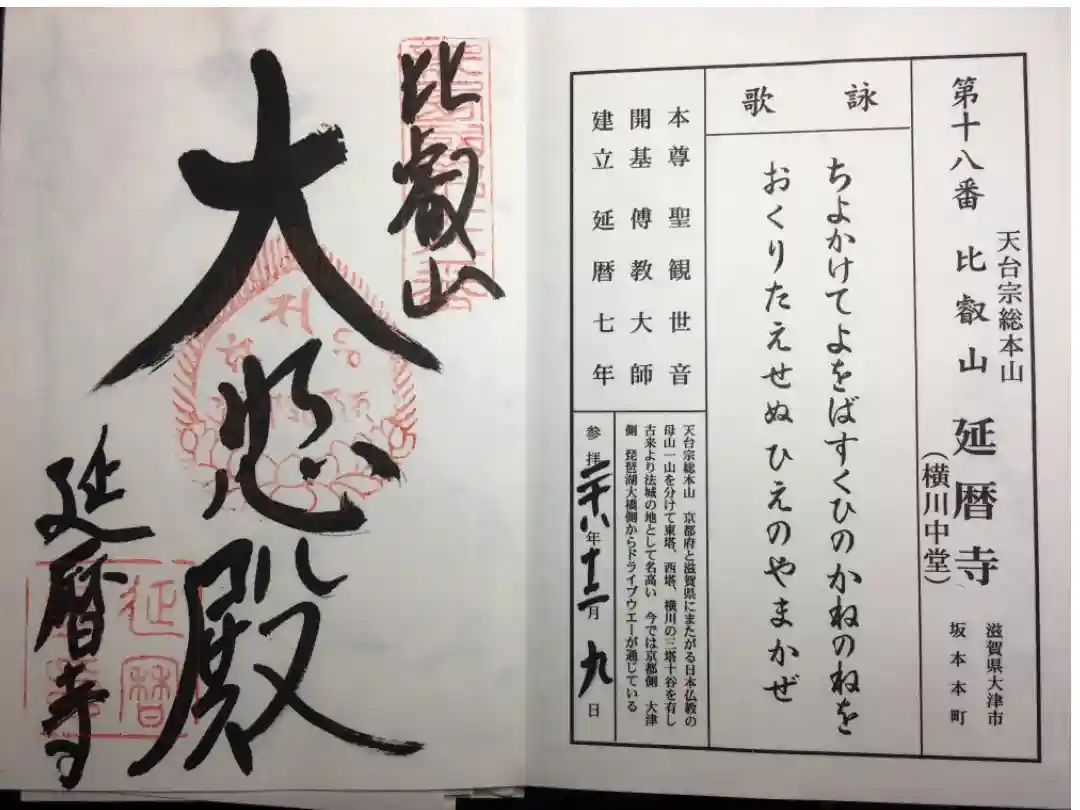 第十八番 比叡山 延暦寺
天台宗総本山
(横川中堂)
滋賀県大津市
坂本本町
詠歌
ちよかけてよをばすくひのかねのねを
おくりたえせぬひえのやまかぜ
本尊 聖観世音
開基 傅教大師
建立 延暦七年
天台宗総本山 京都府と滋賀県にまたがる日本仏教の
母山一山を分けて東塔、西塔、横川の三塔十谷を有し
古来より法城の地として名高い 今では京都側 大津
側 琵琶湖大橋側からドライブウエーが通じている
参拝二十八年十二月九日
比叡山
大悲殿
延暦寺
延暦